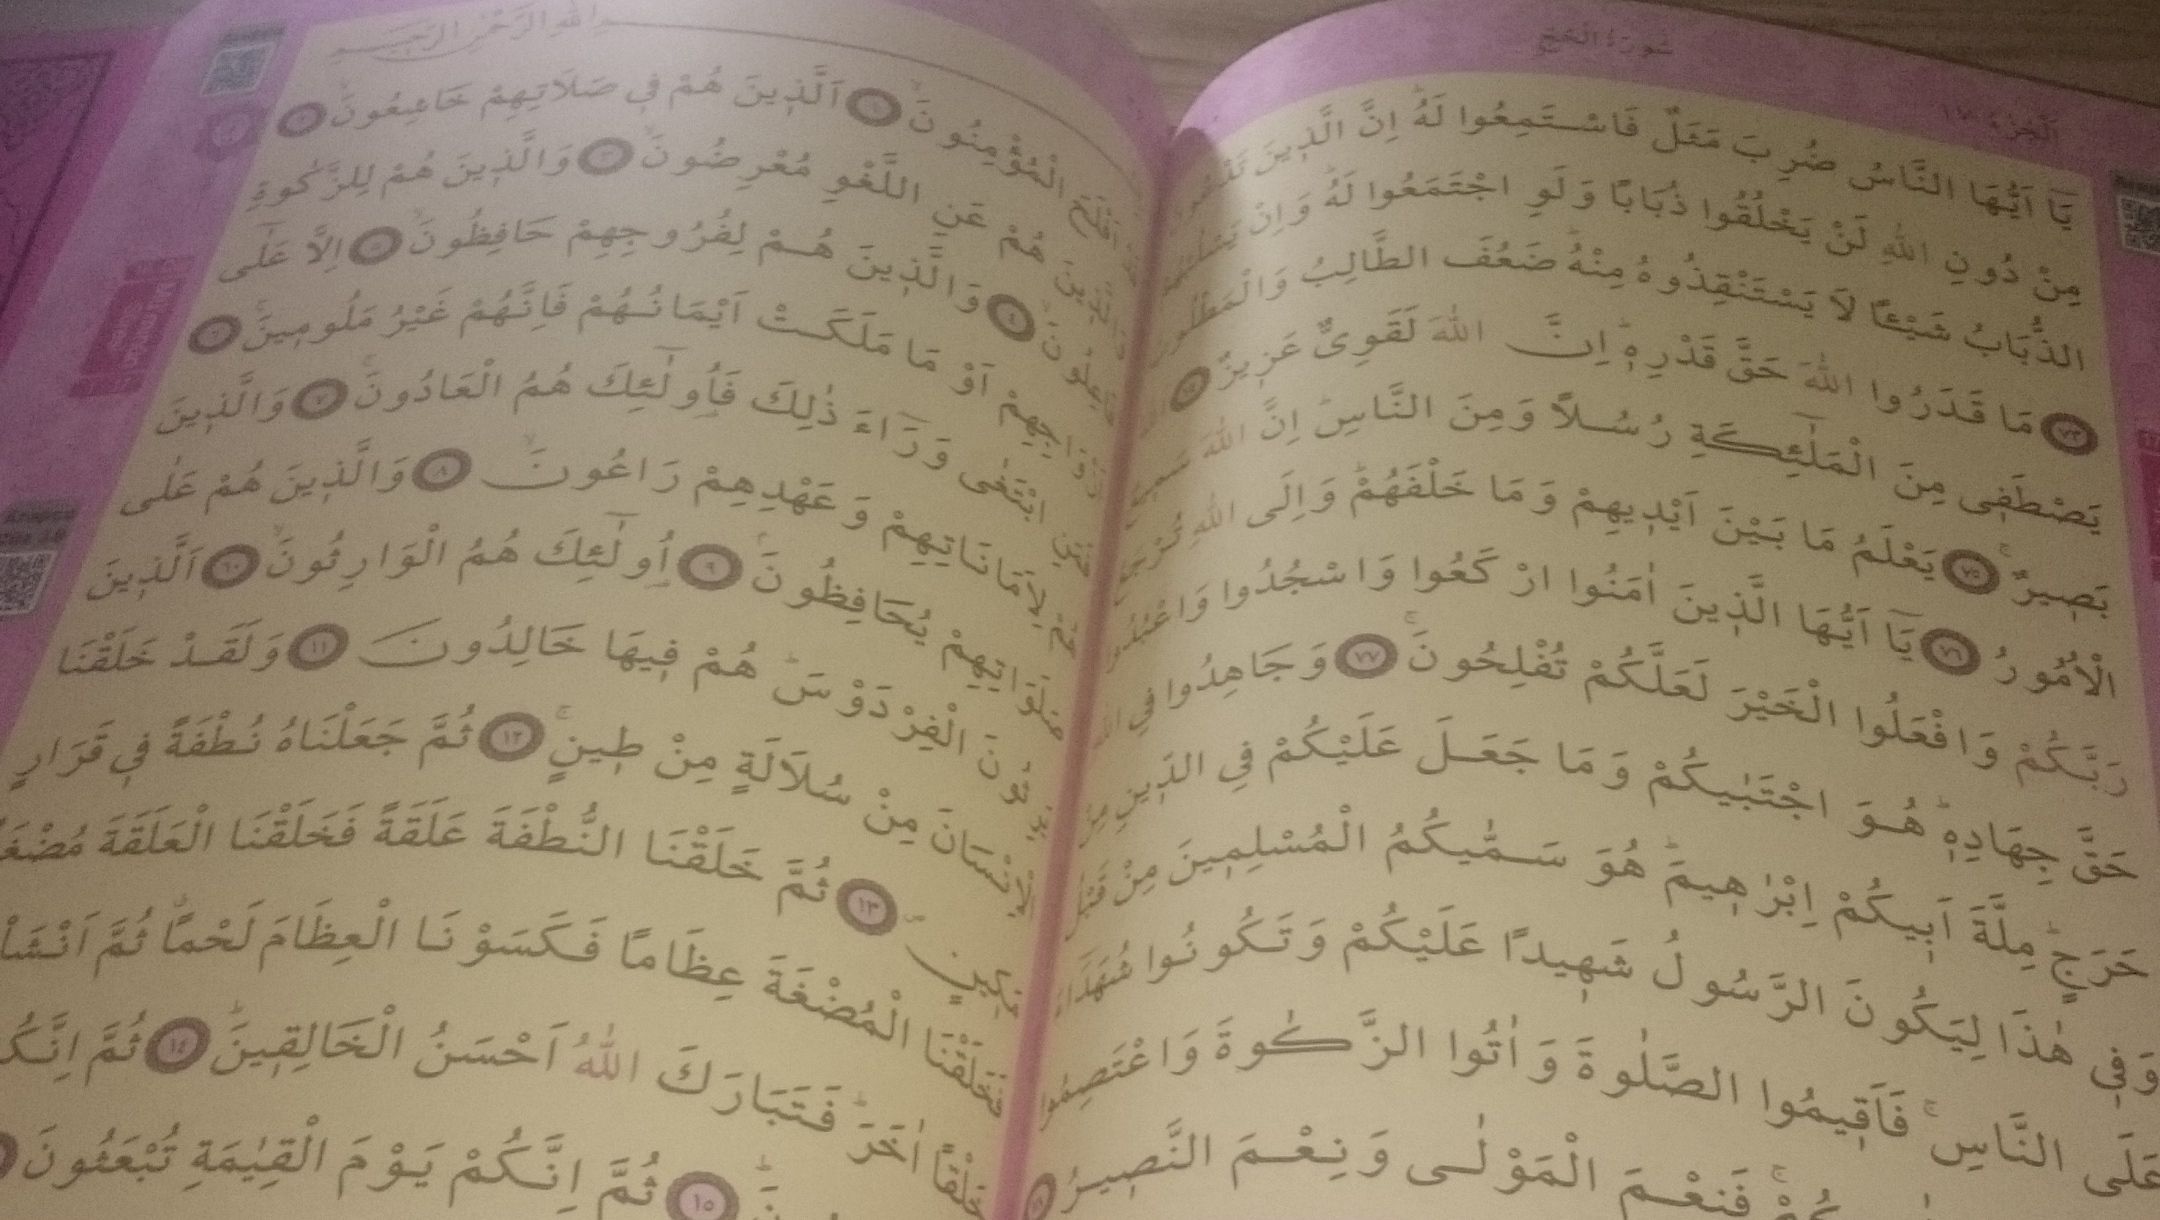 سُورَةُ الْحَجِّ
اَلْجُزْءُ ١٧
يَٓا اَيُّهَا النَّاسُ ضُرِبَ مَثَلٌ فَاسْتَمِعُوا لَهُۜ اِنَّ الَّذ۪ينَ
مِنْ دُونِ اللّٰهِ لَنْ يَخْلُقُوا ذُبَابًا وَلَوِ اجْتَمَعُوا لَهُۜ وَاِنْ
الذُّبَابُ شَيْـًٔا لَا يَسْتَنْقِذُوهُ مِنْهُۜ ضَعُفَ الطَّالِبُ وَالْمَطْلُوبُ
٧٣ مَا قَدَرُوا اللّٰهَ حَقَّ قَدْرِه۪ۜ اِنَّ اللّٰهَ لَقَوِيٌّ عَز۪يزٌ
يَصْطَف۪ي مِنَ الْمَلٰٓئِكَةِ رُسُلًا وَمِنَ النَّاسِۜ اِنَّ اللّٰهَ سَم۪يعٌ
بَص۪يرٌۚ ٧٥ يَعْلَمُ مَا بَيْنَ اَيْد۪يهِمْ وَمَا خَلْفَهُمْۜ وَاِلَى اللّٰهِ تُرْجَعُ
الْاُمُورُ ٧٦ يَٓا اَيُّهَا الَّذ۪ينَ اٰمَنُوا ارْكَعُوا وَاسْجُدُوا وَاعْبُدُوا
رَبَّكُمْ وَافْعَلُوا الْخَيْرَ لَعَلَّكُمْ تُفْلِحُونَۚ ٧٧ وَجَاهِدُوا فِي اللّٰهِ
حَقَّ جِهَادِه۪ۜ هُوَ اجْتَبٰيكُمْ وَمَا جَعَلَ عَلَيْكُمْ فِي الدّ۪ينِ مِنْ
حَرَجٍۜ مِلَّةَ اَب۪يكُمْ اِبْرٰه۪يمَۜ هُوَ سَمّٰيكُمُ الْمُسْلِم۪ينَ مِنْ قَبْلُ
وَف۪ي هٰذَا لِيَكُونَ الرَّسُولُ شَه۪يدًا عَلَيْكُمْ وَتَكُونُوا شُهَدَٓاءَ
عَلَى النَّاسِۚ فَاَق۪يمُوا الصَّلٰوةَ وَاٰتُوا الزَّكٰوةَ وَاعْتَصِمُوا
فَنِعْمَ الْمَوْلٰى وَنِعْمَ النَّص۪يرُ
اللّٰهِ الرَّحْمٰنِ الرَّح۪يمِ
اَفْلَحَ الْمُؤْمِنُونَۙ ١ اَلَّذ۪ينَ هُمْ ف۪ي صَلَاتِهِمْ خَاشِعُونَۙ ٢
وَالَّذ۪ينَ هُمْ عَنِ اللَّغْوِ مُعْرِضُونَۙ ٣ وَالَّذ۪ينَ هُمْ لِلزَّكٰوةِ
فَاعِلُونَۙ ٤ وَالَّذ۪ينَ هُمْ لِفُرُوجِهِمْ حَافِظُونَۙ ٥ اِلَّا عَلٰٓى
اَزْوَاجِهِمْ اَوْ مَا مَلَكَتْ اَيْمَانُهُمْ فَاِنَّهُمْ غَيْرُ مَلُوم۪ينَۚ ٦
فَمَنِ ابْتَغٰى وَرَٓاءَ ذٰلِكَ فَاُو۬لٰٓئِكَ هُمُ الْعَادُونَۚ ٧ وَالَّذ۪ينَ
هُمْ لِاَمَانَاتِهِمْ وَعَهْدِهِمْ رَاعُونَۙ ٨ وَالَّذ۪ينَ هُمْ عَلٰى
صَلَوَاتِهِمْ يُحَافِظُونَۘ ٩ اُو۬لٰٓئِكَ هُمُ الْوَارِثُونَۙ ١٠ اَلَّذ۪ينَ
يَرِثُونَ الْفِرْدَوْسَۜ هُمْ ف۪يهَا خَالِدُونَ ١١ وَلَقَدْ خَلَقْنَا
الْاِنْسَانَ مِنْ سُلَالَةٍ مِنْ ط۪ينٍۚ ١٢ ثُمَّ جَعَلْنَاهُ نُطْفَةً ف۪ي قَرَارٍ
مَك۪ينٍۖ ١٣ ثُمَّ خَلَقْنَا النُّطْفَةَ عَلَقَةً فَخَلَقْنَا الْعَلَقَةَ مُضْغَةً
فَخَلَقْنَا الْمُضْغَةَ عِظَامًا فَكَسَوْنَا الْعِظَامَ لَحْمًاۗ ثُمَّ
خَلْقًا اٰخَرَۜ فَتَبَارَكَ اللّٰهُ اَحْسَنُ الْخَالِق۪ينَۜ ١٤ ثُمَّ
١٥ ثُمَّ اِنَّكُمْ يَوْمَ الْقِيٰمَةِ تُبْعَثُونَ